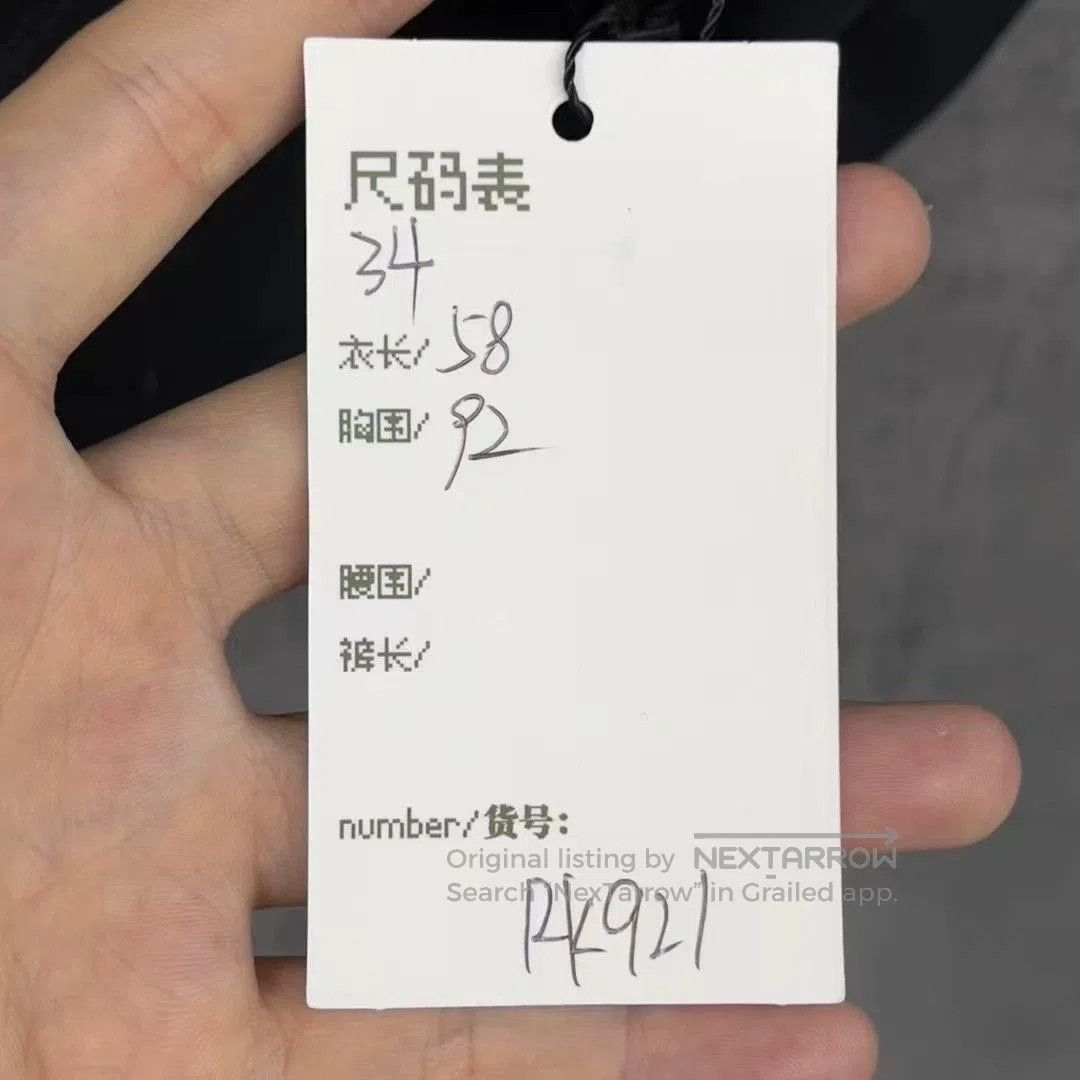 尺码表
34
衣长/ 58
胸围/ 92
腰围/
裤长/
number/货号:
Original listing by NEXTARROW
Search "NexTarrow" in Grailed app.
RK921